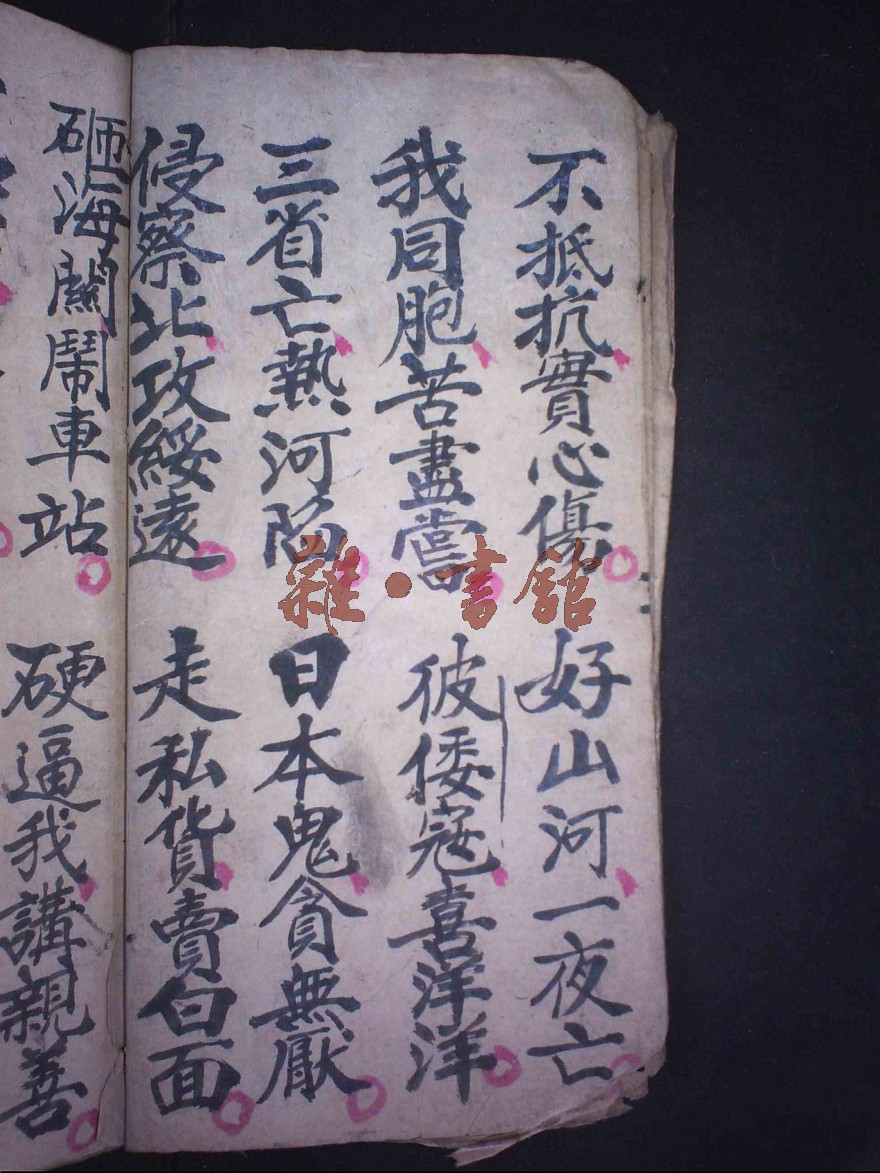 不抵抗實心傷 好山河一夜亡
我同胞苦盡嘗 彼倭寇喜洋洋
三省亡熱河陷 日本鬼貪無厭
侵察北攻綏遠 走私貨賣白面
砸海關鬧車站 硬逼我講親善
雜·書館